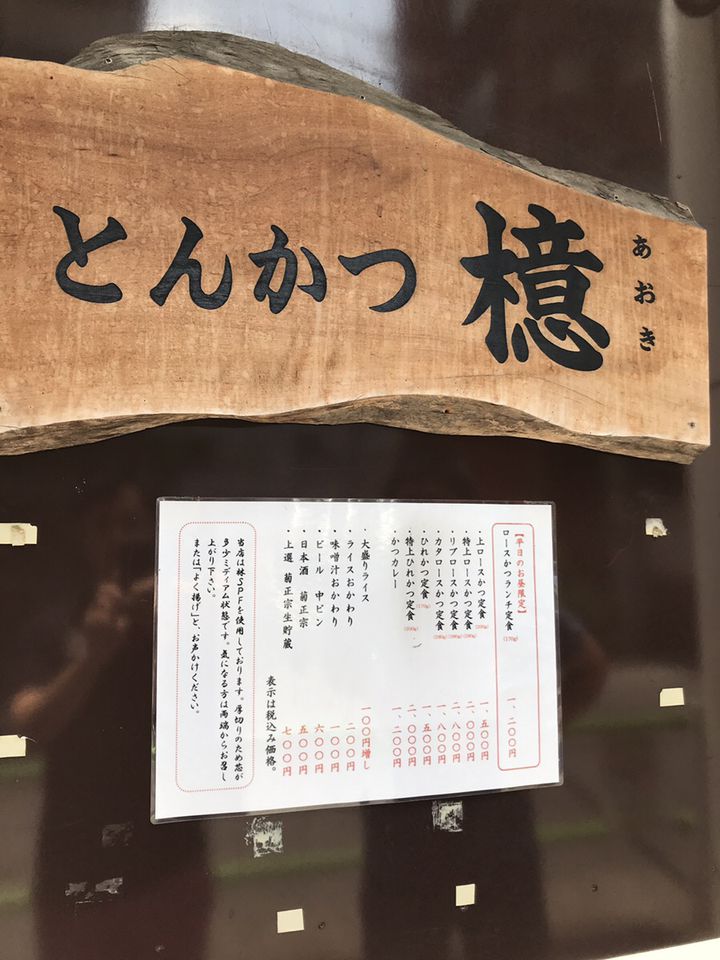 とんかつ 檍
あおき
【平日のお昼限定】
ロースかつランチ定食(170g) 一、二〇〇円
・上ロースかつ定食(200g) 一、五〇〇円
・特上ロースかつ定食(300g) 二、〇〇〇円
・リブロースかつ定食 二、八〇〇円
・カタロースかつ定食 一、八〇〇円
・ひれかつ定食(170g) 一、五〇〇円
・特上ひれかつ定食 二、〇〇〇円
・かつカレー 一、二〇〇円
・大盛りライス 一〇〇円増し
・ライスおかわり 二〇〇円
・味噌汁おかわり 一〇〇円
・ビール 中ビン 六〇〇円
・日本酒 菊正宗 五〇〇円
・上選 菊正宗生貯蔵 七〇〇円
表示は税込み価格。
当店は林SPFを使用しております。厚切りのため芯が
多少ミディアム状態です。気になる方は両端からお召し
上がり下さい。
または「よく揚げ」と、お声かけください。